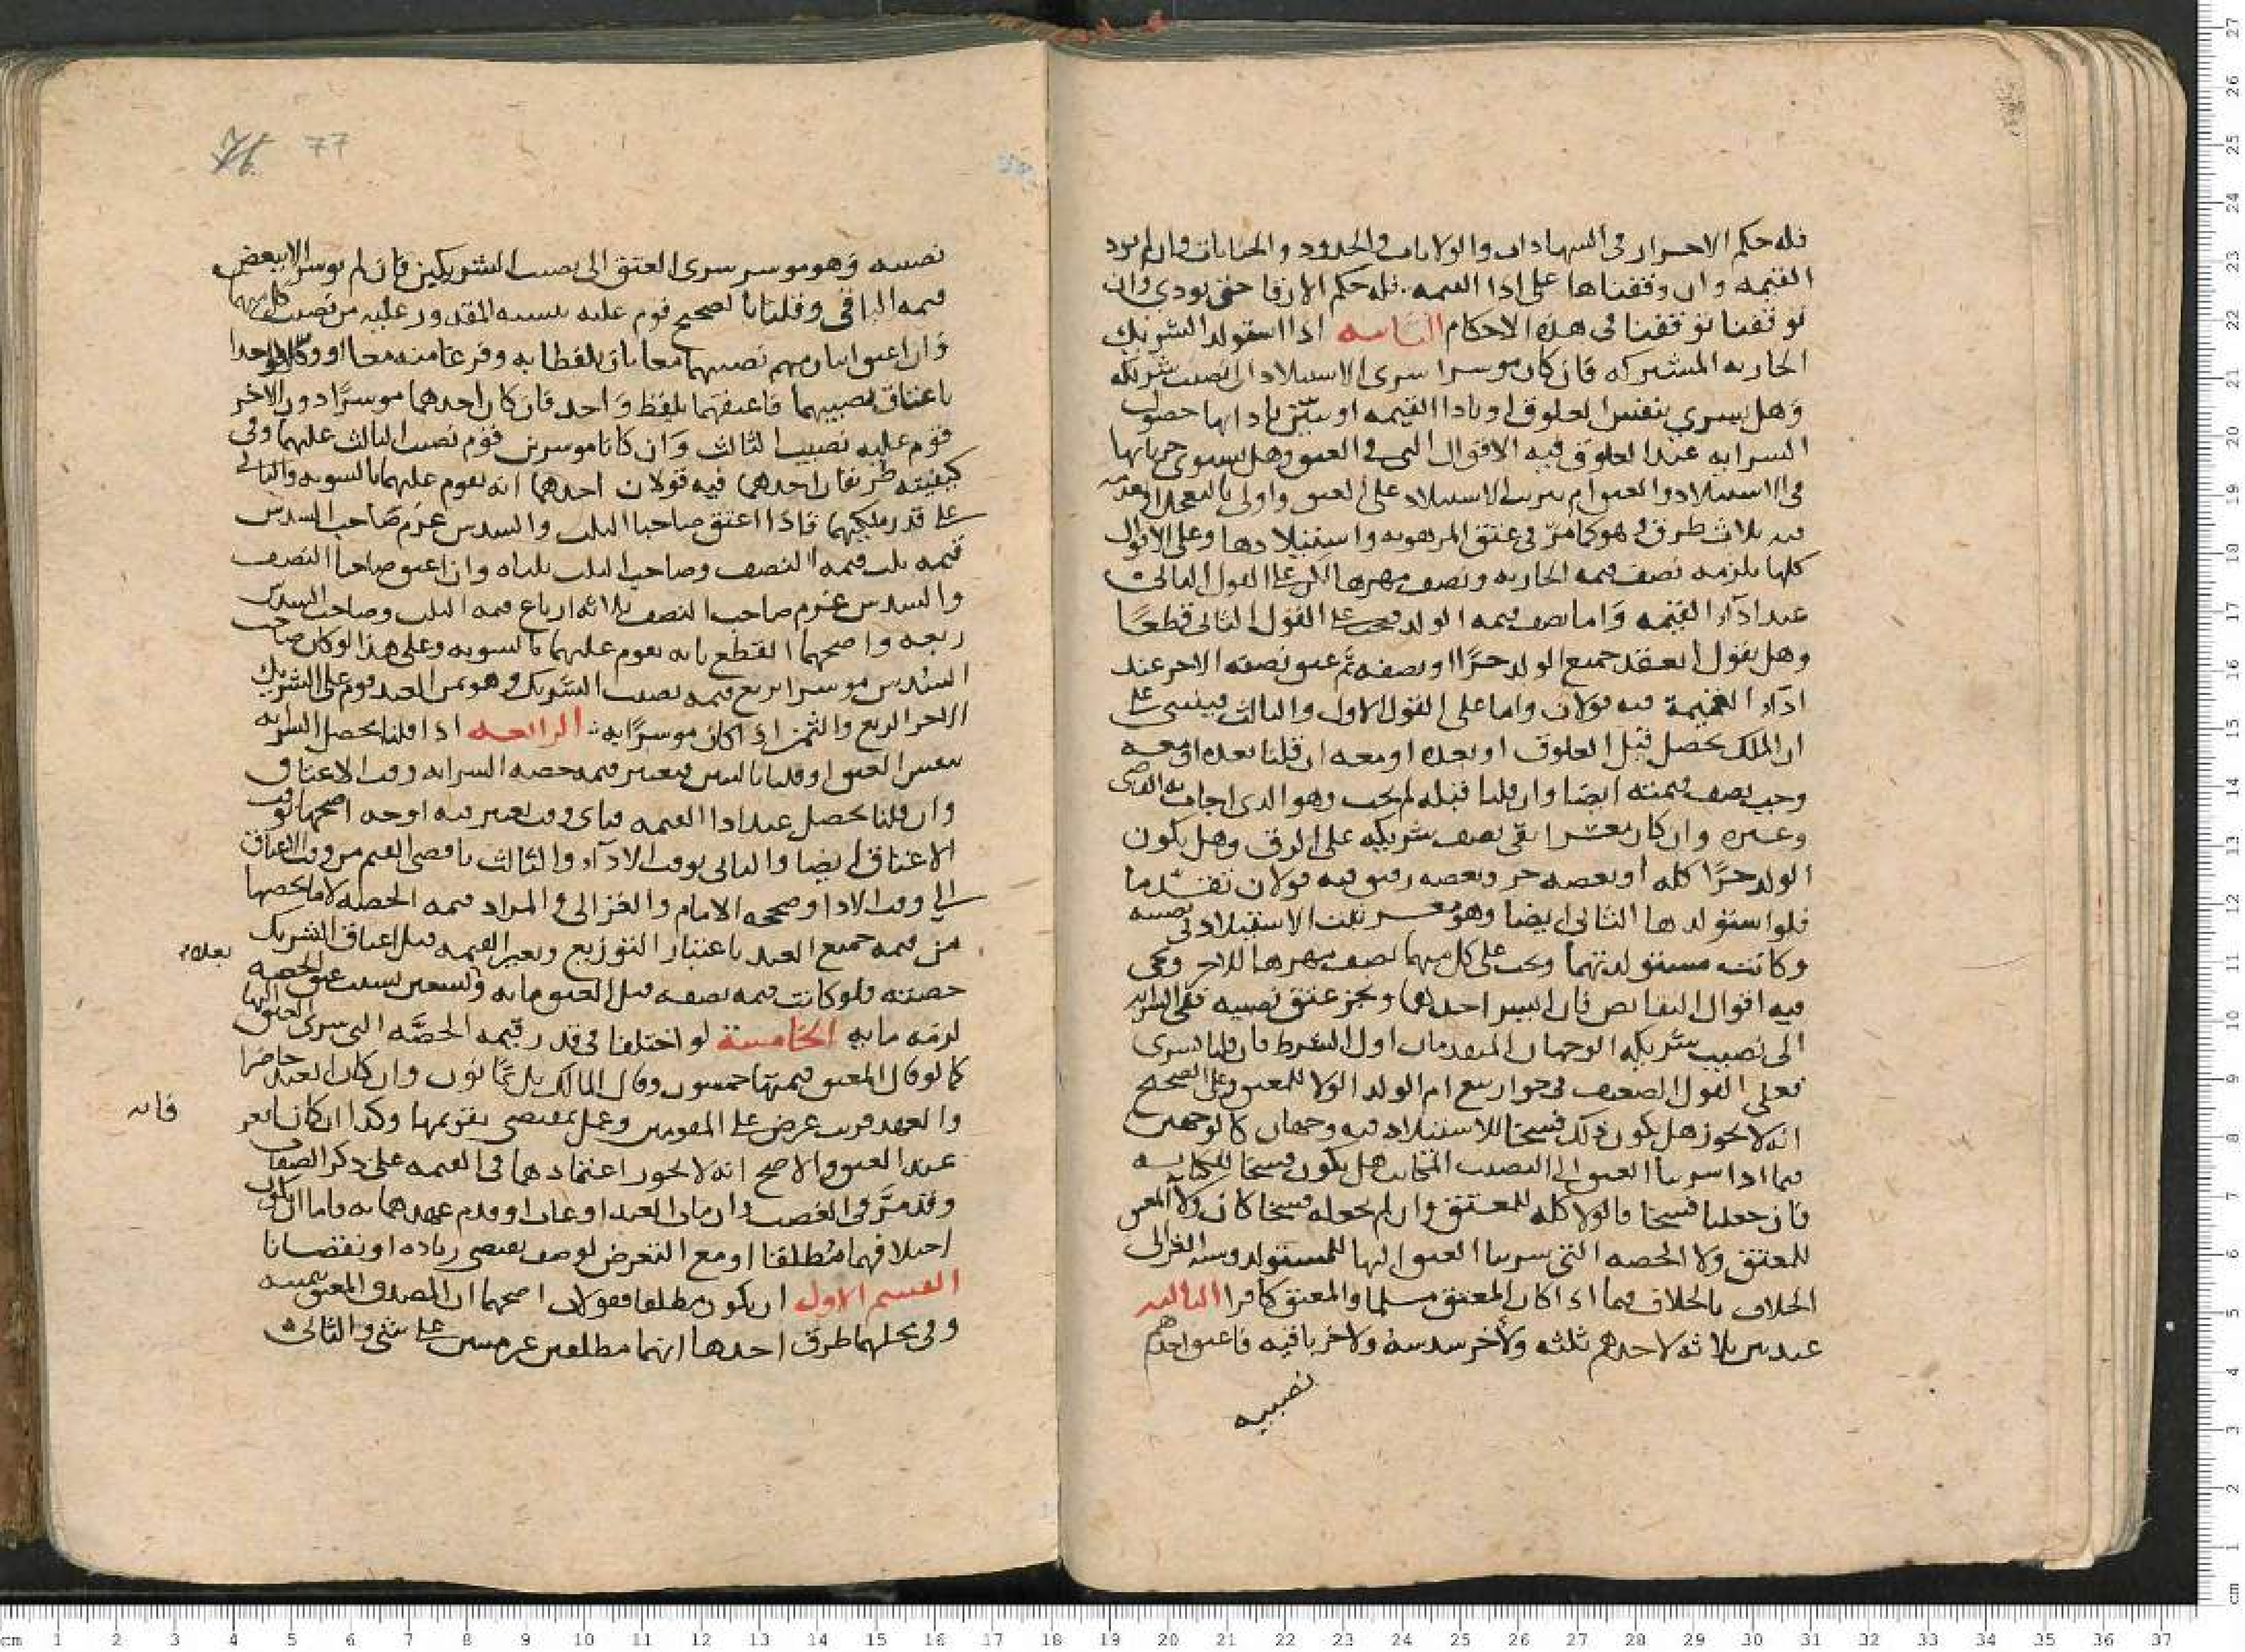 فله حكم الاحرار في الشهادات والولايات والحدود والجنايات وان لم يود
القيمه وان وقفناها على ادا القيمه فله حكم الارقا حتى يودي وان
توقفنا توقفنا في هذه الاحكام الثانيه اذا استولد الشريك
الجاريه المشتركه فان كان موسرا سرى الاستيلاد الى نصيب شريكه
وهل يسري بنفس العلوق او بادا القيمه او يتبين بادايها حصول
السرايه عند العلوق فيه الاقوال التي في العتق وهل يستوي جريانها
في الاستيلاد والعتق ام يترتب الاستيلاد على العتق واولى بالتعجيل او بعدمه
فيه ثلاث طرق هو كما مر في عتق المرهونه واستيلادها وعلى الاقوال
كلها يلزمه نصف قيمه الجاريه ونصف مهرها لكن على القول الثاني
عند ادآء القيمه واما نصف قيمه الولد فتجب على القول الثاني قطعًا
وهل نقول انعقد جميع الولد حرًا او نصفه ثم عتق نصفه الاخر عند
ادآء القيمة فيه قولان واما على القول الاول والثالث فينبني على
ان الملك يحصل قبل العلوق او بعده او معه ان قلنا بعده او معه
وجب نصف قيمته ايضا وان قلنا قبله لم يجب وهو الذي اجاب به القاضي
وغيره وان كان معسرا بقي نصف شريكه على الرق وهل يكون
الولد حرًا كله او بعضه حر وبعضه رقيق فيه قولان تقدما
فلو استولدها الثاني ايضا وهو معسر ثبت الاستيلاد في نصيبه
وكانت مستولدتهما ويجب على كل منهما نصف مهرها للاخر ويجي
فيه اقوال التقاص فان ايسر احدهما ونجز عتق نصيبه ففي السرايه
الى نصيب شريكه الوجهان المتقدمان اول الشرط فان قلنا يسري
فعلى القول الضعيف في جواز بيع ام الولد الولا للمعتق وعلى الصحيح
انه لا يجوز هل يكون ذلك فسخا للاستيلاد فيه وجهان كالوجهين
فيما اذا سرينا العتق الى النصيب المكاتب هل يكون فسخا للكتابه
فان جعلنا فسخا فالولا كله للمعتق وان لم نجعله فسخا كان ولا المعتق
للمعتق ولا الحصه التي سرينا العتق اليها للمستولد وشبه الغزالي
الخلاف بالخلاف فيما اذا كان المعتق مسلما والمعتق كافرا الثالثه
عبد بين ثلاثه لاحدهم ثلثه ولاخر سدسه ولاخر باقيه فاعتق احدهم
نصيبه
76 77
نصيبه وهو موسر سرى العتق الى نصيب الشريكين فان لم يوسر الا ببعض
قيمه الباقي وقلنا بالصحيح قوم عليه بنسبه المقدور عليه من نصيب كل منهما
وان اعتق اثنان منهم نصيبهما معا بان تلفظا به وفرغا منه معا او وكلا واحدا
باعتاق نصيبهما فاعتقهما بلفظ واحد فان كان احدهما موسرًا دون الاخر
قوم عليه نصيب الثالث وان كانا موسرين قوم نصيب الثالث عليهما وفي
كيفيته طريقان احدهما فيه قولان احدهما انه يقوم عليهما بالسويه والثاني
على قدر ملكيهما فاذا اعتق صاحبا الثلث والسدس غرم صاحب السدس
قيمه ثلث قيمه النصف وصاحب الثلث ثلثاه وان اعتق صاحبا النصف
والسدس غرم صاحب النصف ثلاثه ارباع قيمه الثلث وصاحب السدس
ربعه واصحهما القطع بانه يقوم عليهما بالسويه وعلى هذا لو كان صاحب
السدس موسرا بربع قيمه نصيب الشريك وهو ثمن العبد قوم على الشريك
الاخر الربع والثمن اذا كان موسرًا به الرابعه اذا قلنا تحصل السرايه
بنفس العتق او قلنا بالتبين فتعتبر قيمه حصه السرايه وقت الاعتاق
وان قلنا تحصل عند ادا القيمه فباي وقت تعتبر فيه اوجه اصحها بوقت
الاعتاق ايضا والثاني بوقت الادآء والثالث باقصى القيم من وقت الاعتاق
الى وقت الادا وصححه الامام والغزالي والمراد قيمه الحصه لا ما يخصها
من قيمه جميع العبد باعتبار التوزيع وتعتبر القيمه قبل اعتاق الشريك
حصته فلو كانت قيمه نصفه قبل العتق مايه وتسعين بسبب عتق الحصه
لزمه مايه الخامسة لو اختلفا في قدر قيمه الحصه التي سرى العتق اليها
كما لو قال المعتق قيمتها خمسون وقال المالك بل ثمانون وان كان العبد حاضرا
والعهد قريب عرض على المقومين وعمل بمقتضى تقويمها وكذا ان كان مات
عند العتق والاصح انه لا يجوز اعتمادها في القيمه على ذكر الصفات
وقد مر في الغصب وان مات العبد او غاب او قدم عهدهما به فاما ان يكون
اختلافهما مطلقا او مع التعرض لوصف يقتضي زياده او نقصانا
القسم الاول ان يكون مطلقا فقولان اصحهما ان المصدق المعتق بيمينه
وفي محلهما طرق احدها انهما مطلقين غير مبنيين على شي والثاني
بعده
فانه